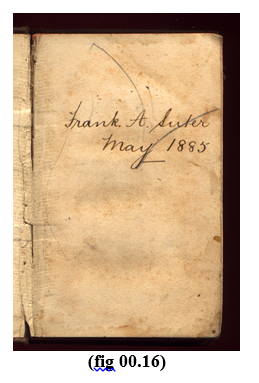 Frank. A. Suter
May 1885
(fig 00.16)